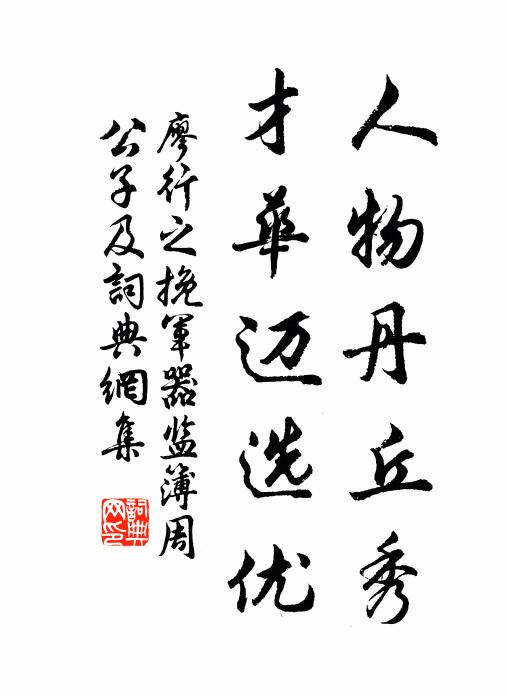 人物丹丘秀
才華迈选优
廖行之挽军器监簿周
公子及詞典網集
詞典网印